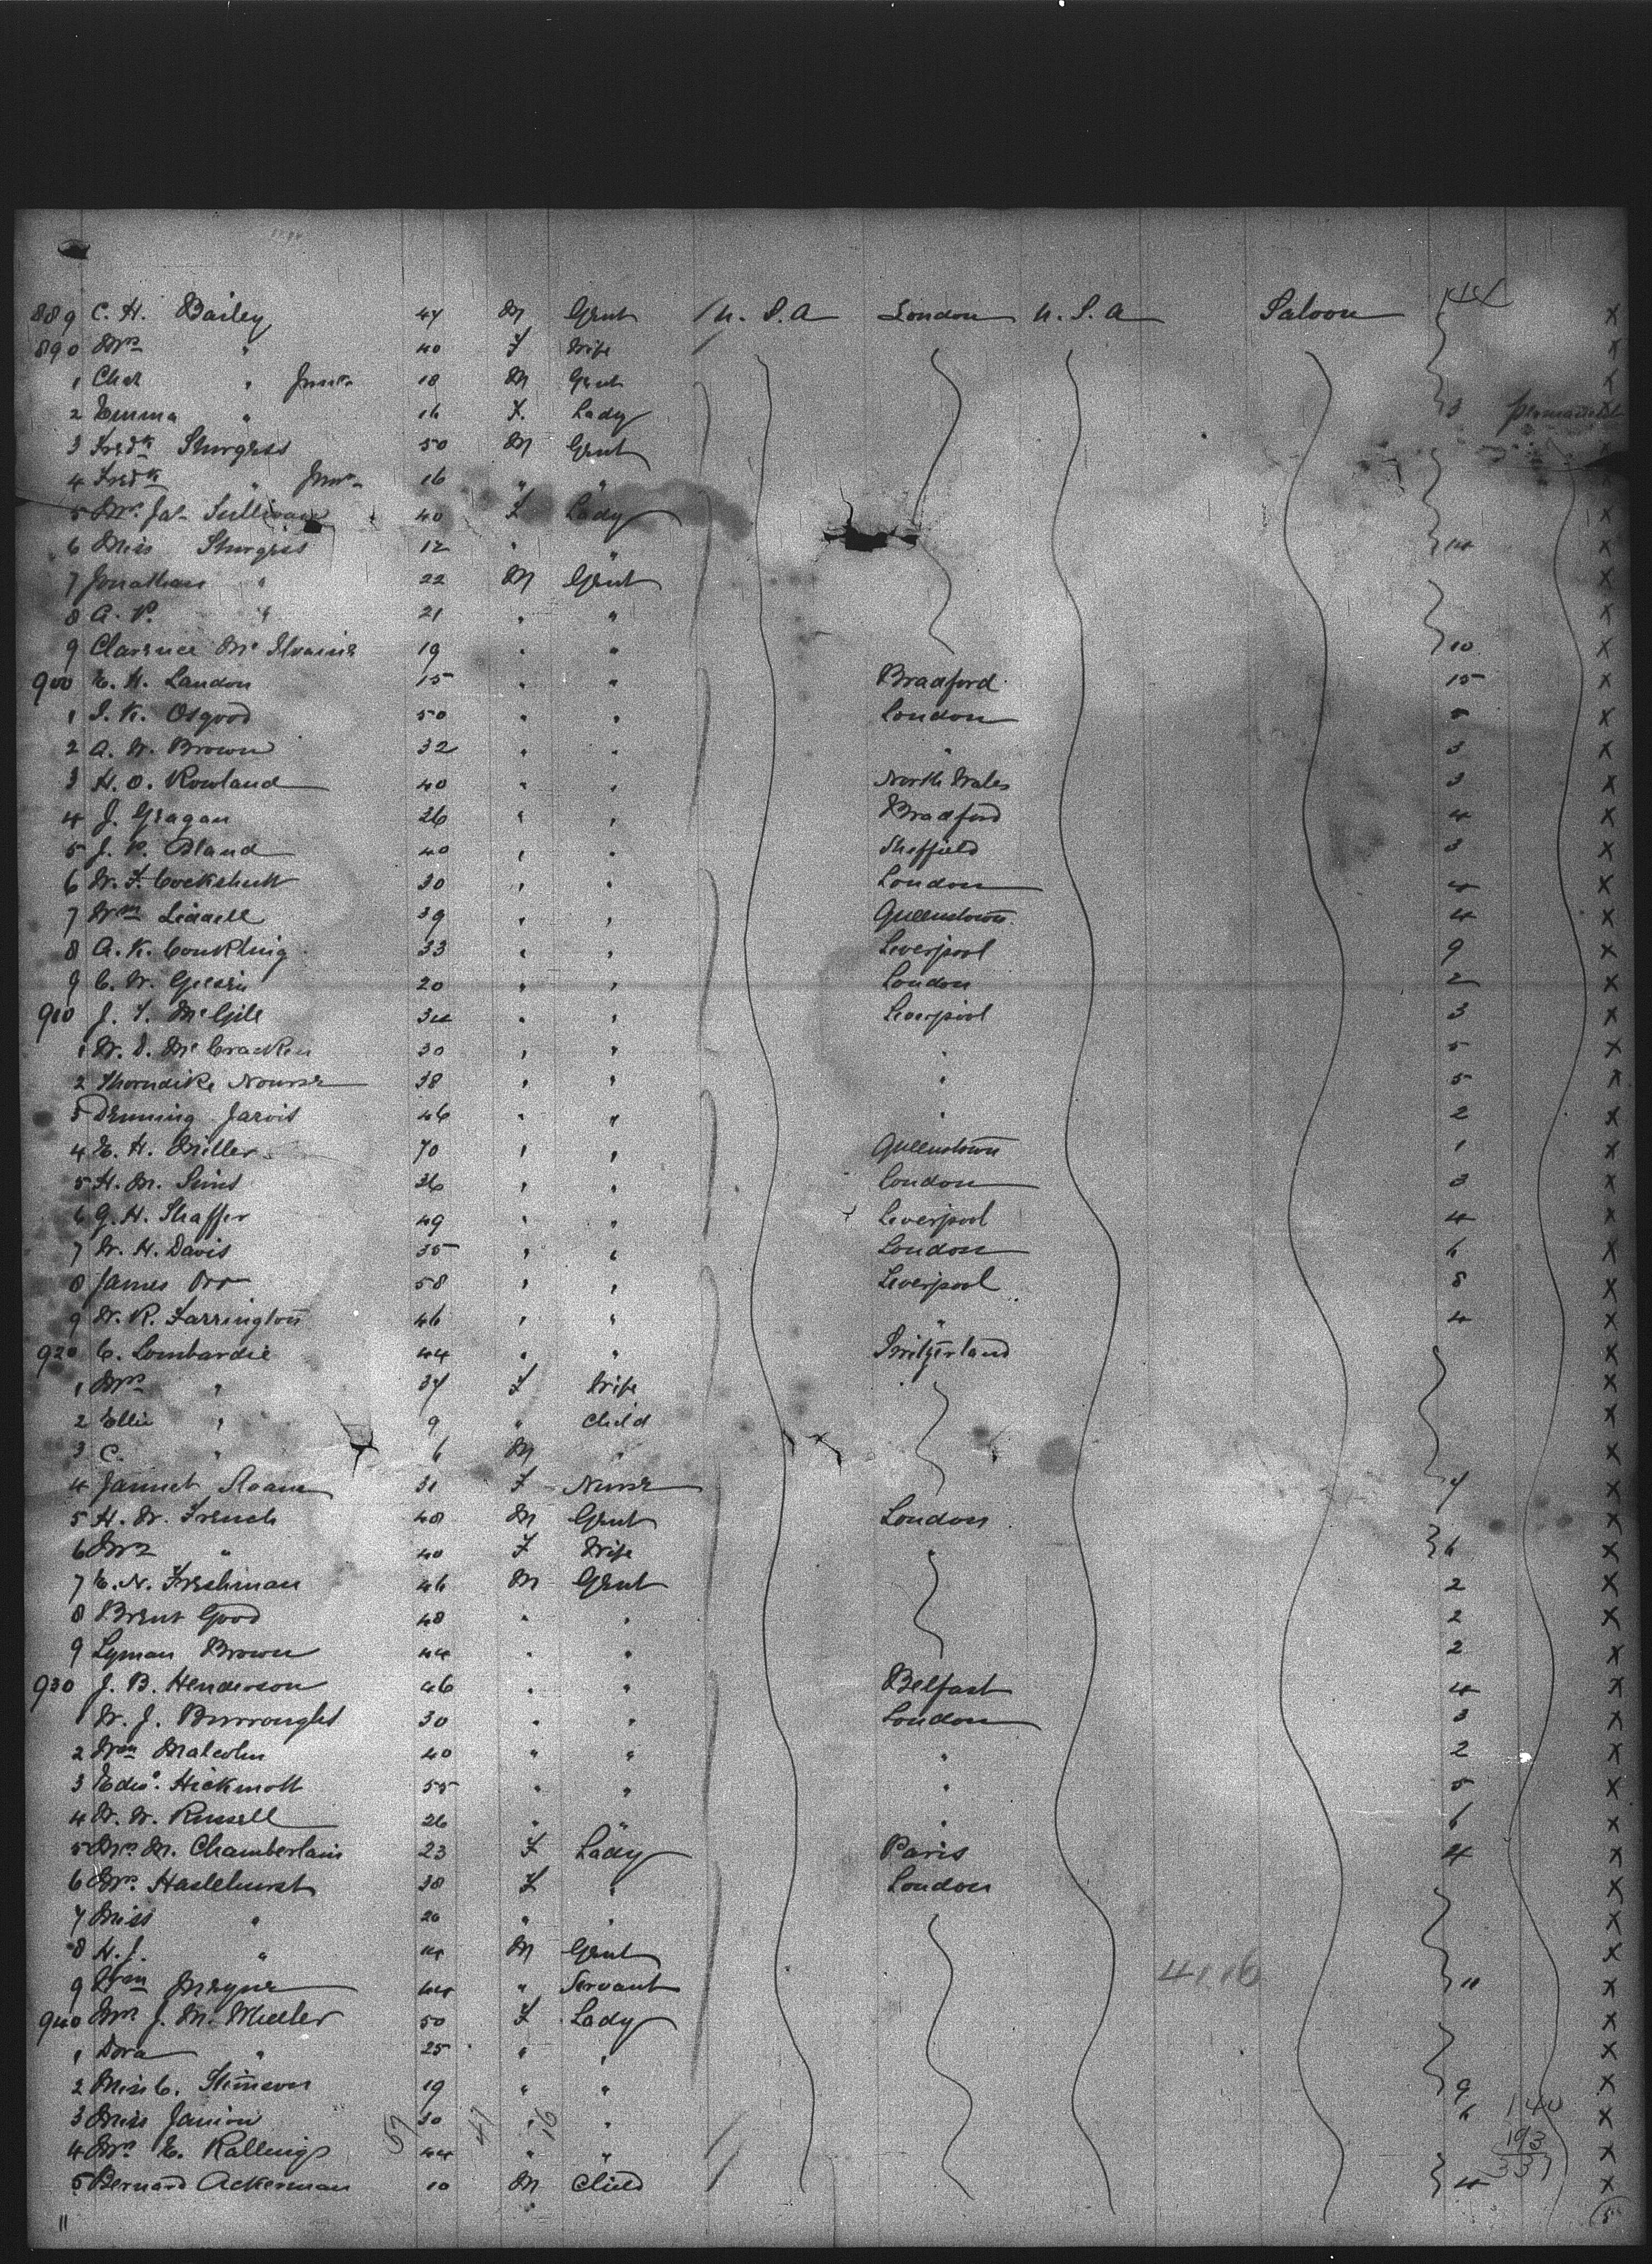 889 C. H. Bailey 44 M Gent U. S. A London U. S. A Saloon X
890 Mrs " 40 F Wife X
1 Chas " Junr 18 M Gent X
2 Emma " 16 F. Lady 3 X
3 Fredk Sturgess 50 M Gent
4 Fredk " Junr 16 " "
5 Mrs Jas Sullivan 40 F Lady X
6 Miss Sturgess 12 " " 14 X
7 Jonathan " 22 M Gent X
8 A. P. " 21 " " X
9 Clarence Mc Ilvaine 19 " " 10 X
900 E. H. Landon 15 " " Bradford 15 X
1 S. K. Osgood 50 " " London 5 X
2 A. W. Brown 32 " " " 3 X
3 H. O. Rowland 40 " " North Wales 3 X
4 J. Gragan 26 " " Bradford 4 X
5 J. P. Bland 40 " " Sheffield 3 X
6 W. F. Cockshutt 30 " " London 4 X
7 Wm Liddell 39 " " Queenstown 4 X
8 A. R. Conkling 33 " " Liverpool 9 X
9 C. W. 20 " " London 2 X
910 J. T. McGill 34 " " Liverpool 3 X
1 W. D. McCracken 30 " " " 5 X
2 Thorndike Nourse 38 " " " 5 X
3 Denning Jarvis 46 " " " 2 X
4 E. H. Miller 70 " " Queenstown 1 X
5 H. M. Sims 36 " " London 3 X
6 G. H. Shaffer 49 " " Liverpool 4 X
7 W. H. Davis 35 " " London 6 X
8 James Orr 58 " " Liverpool 8 X
9 W. R. Farrington 46 " " " 4 X
920 C. Lombardie 44 " " Switzerland X
1 Mrs " 37 F Wife X
2 Ellie " 9 " Child X
3 C. " 6 M " X
4 Jannet Sloane 31 F Nurse 7 X
5 H. W. French 48 M Gent London X
6 Mrs " 40 F Wife " 6 X
7 E. N. Freshman 46 M Gent 2 X
8 Brent Good 48 " " 2 X
9 Lyman Brown 44 " " 2 X
930 J. B. Henderson 46 " " Belfast 4 X
1 W. J. Burroughs 30 " " London 3 X
2 Wm Malcolm 40 " " " 2 X
3 Edw. Hickmott 55 " " " 5 X
4 W. W. Russell 26 " " 6 X
5 Mrs M. Chamberlain 23 F Lady Paris 4 X
6 Mrs. Haslehurst 38 F " London X
7 Miss " 20 " " X
8 H. J. " 14 M Gent X
9 Wm 44 " Servant 11 X
940 Mrs J. M. Mueller 50 F Lady X
1 Dora " 25 " " X
2 Miss C. Stimson 19 " " 9 X
3 Miss Janion 30 " " 6 X
4 Mrs E. Rallings 44 " " X
5 Bernard Ackerman 10 M Child 4 X
4116
57 41 16
140
193
337
11